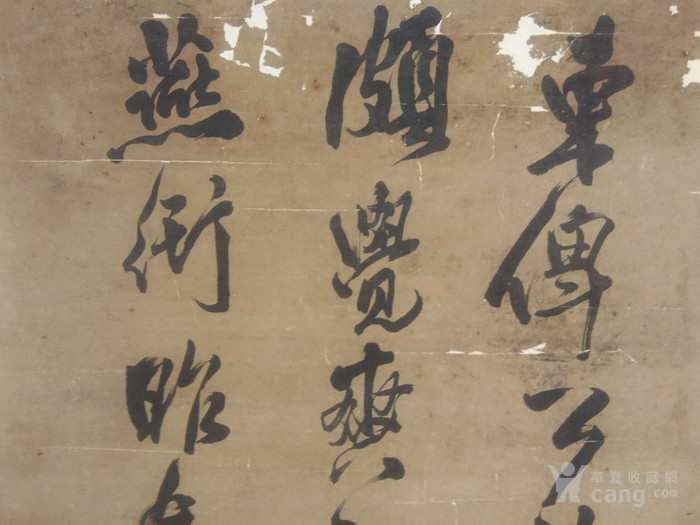 東傳公
頗覺爽
燕衎昨
華夏收藏網
cang.com